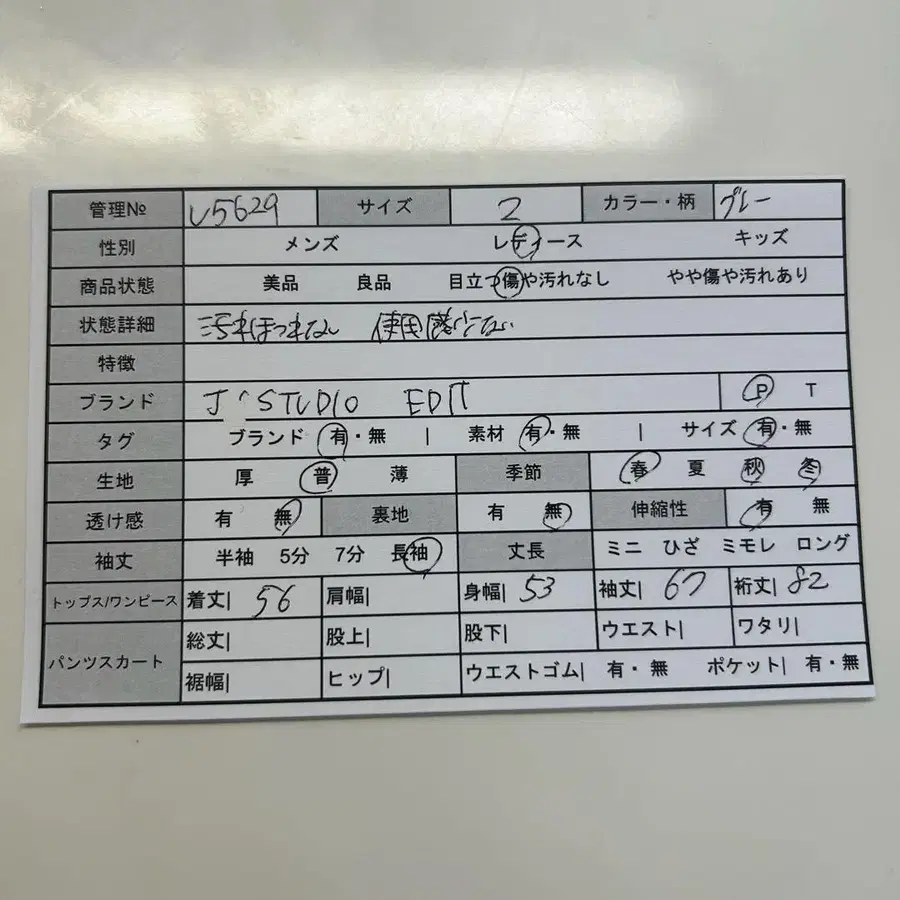 管理№ L5629 サイズ 2 カラー・柄 グレー
性別 メンズ レディース キッズ
商品状態 美品 良品 目立つ傷や汚れなし やや傷や汚れあり
状態詳細 汚れほつれなし 使用感少ない
特徴
ブランド J'STUDIO EDIT P T
タグ ブランド 有・無 | 素材 有・無 | サイズ 有・無
生地 厚 普 薄 季節 春 夏 秋 冬
透け感 有 無 裏地 有 無 伸縮性 有 無
袖丈 半袖 5分 7分 長袖 丈長 ミニ ひざ ミモレ ロング
トップス/ワンピース 着丈| 56 肩幅| 身幅| 53 袖丈| 67 裄丈| 82
パンツスカート 総丈| 股上| 股下| ウエスト| ワタリ|
裾幅| ヒップ| ウエストゴム| 有・無 ポケット| 有・無